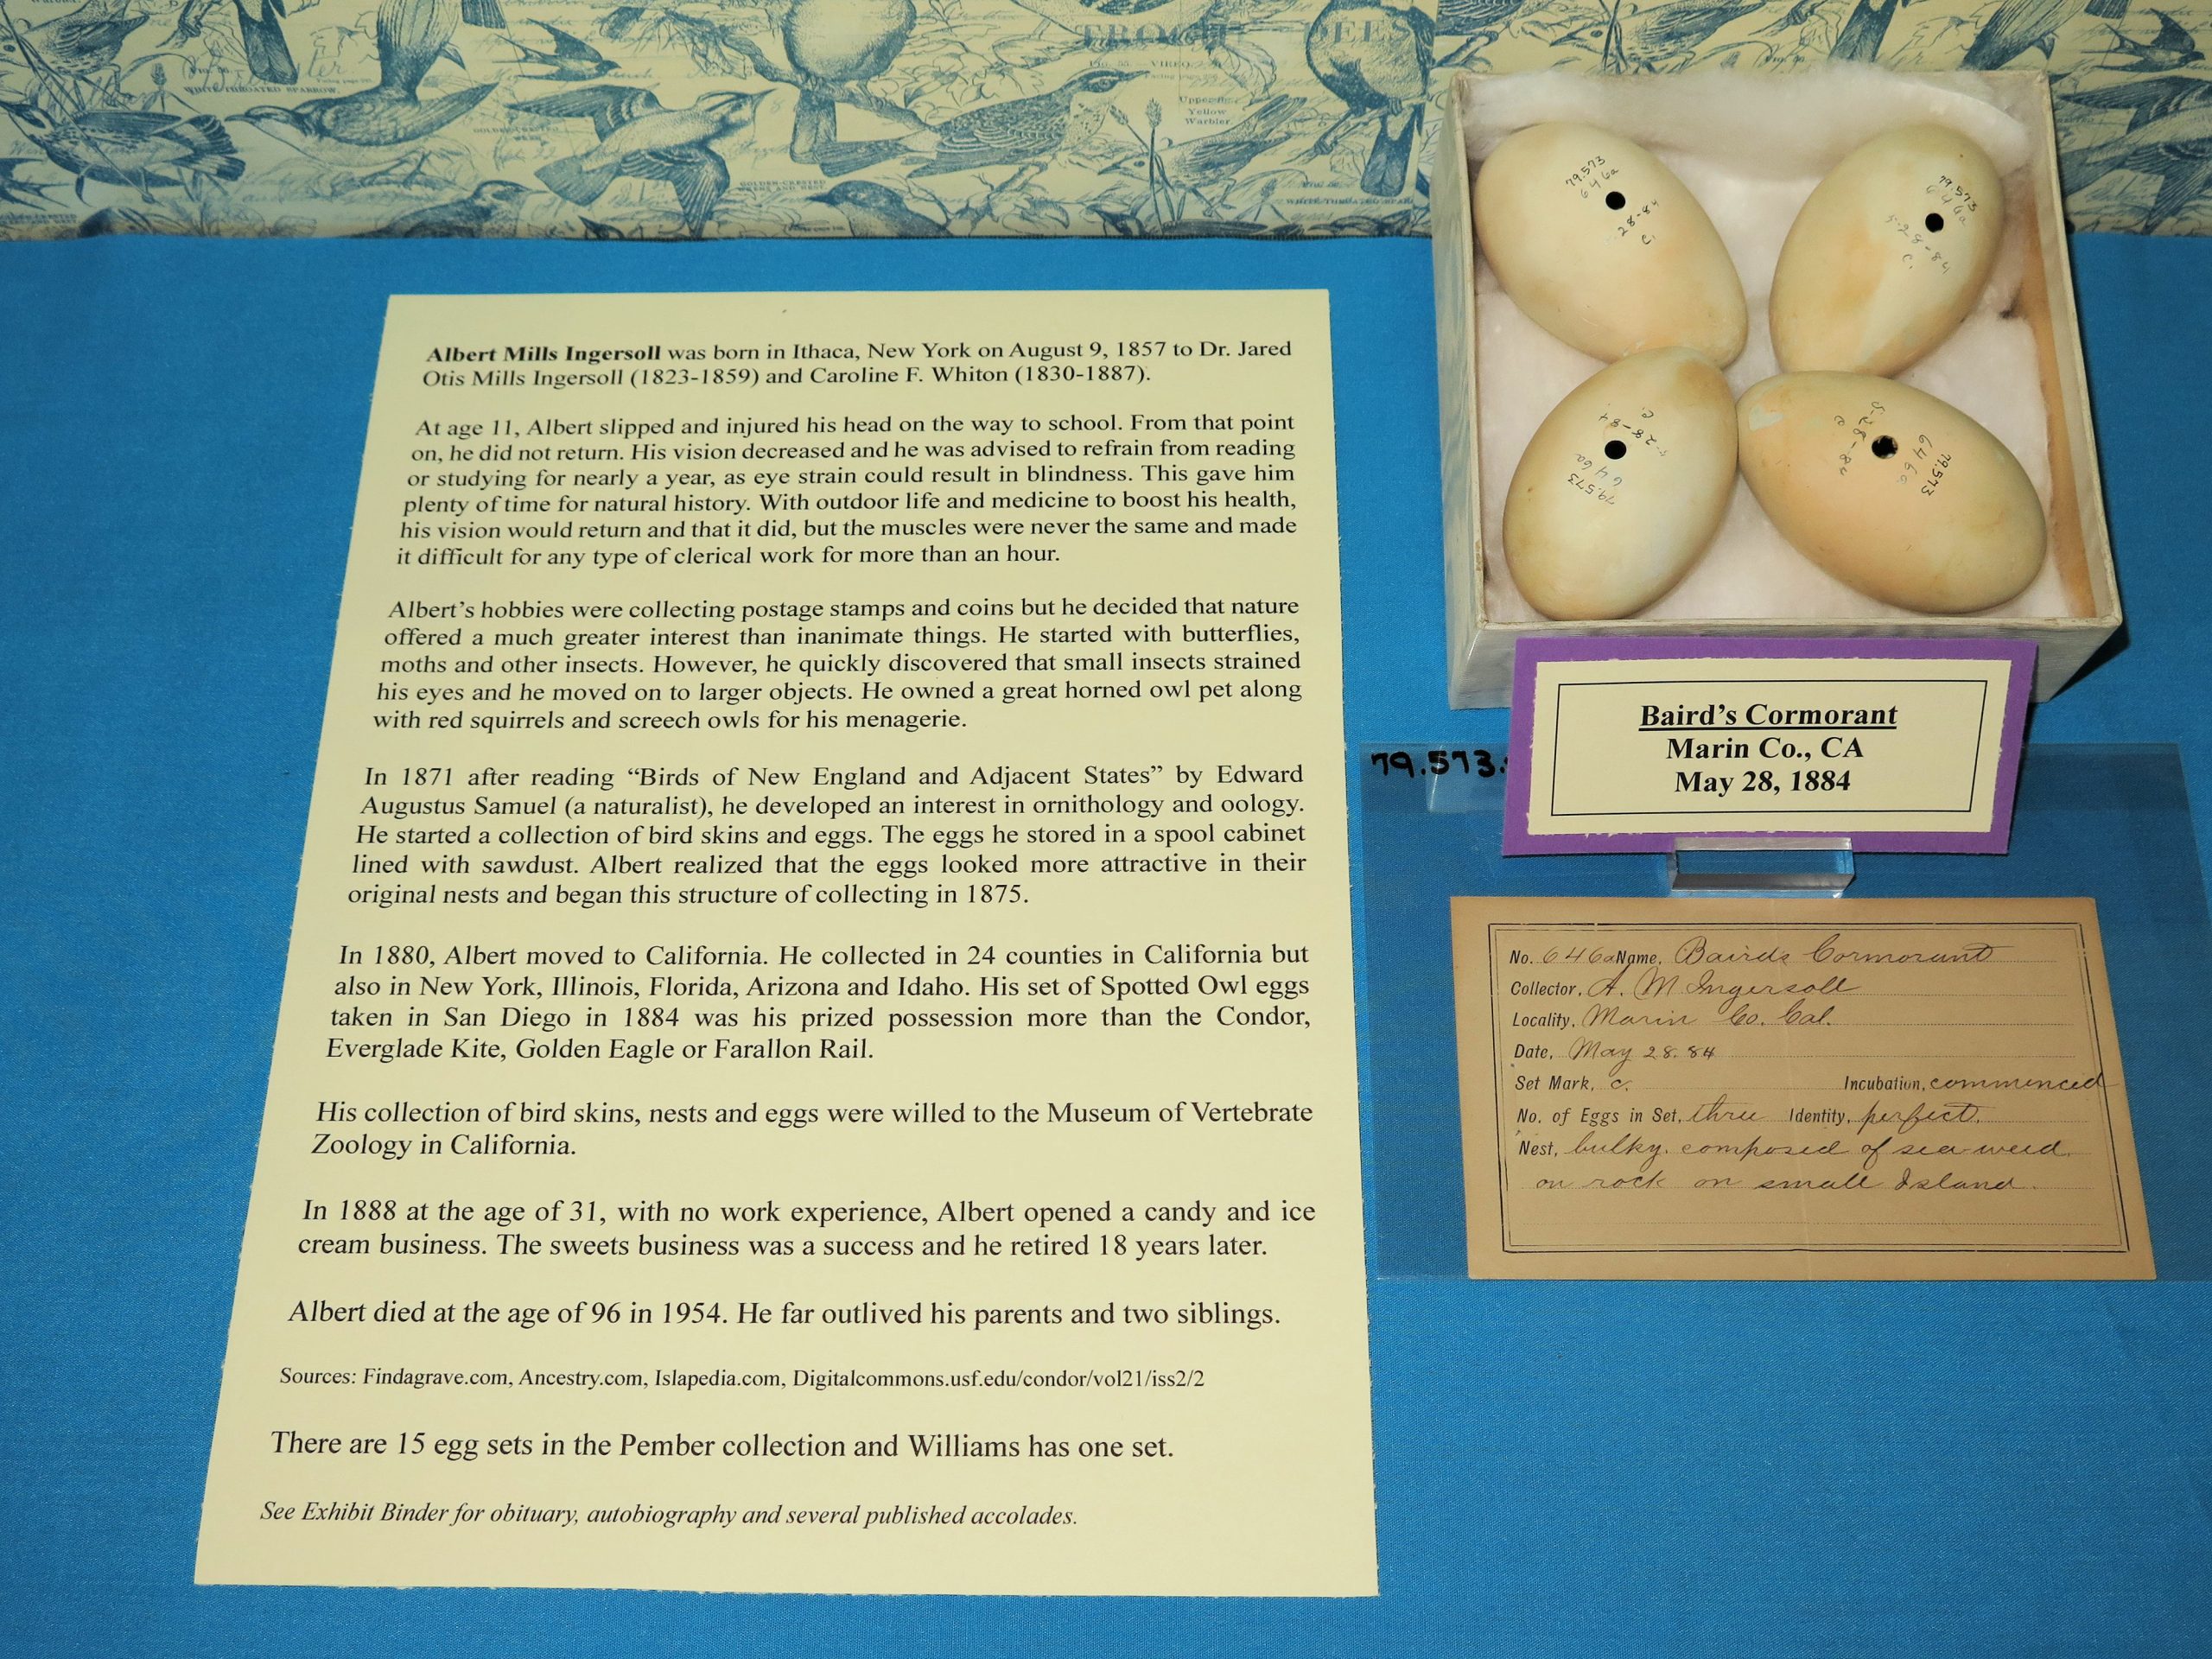 TROCHI
DEES
WHITE-THROATED SPARROW.
FIG. 55. — VIREO
Upper fig.
Yellow
Warbler.
Albert Mills Ingersoll was born in Ithaca, New York on August 9, 1857 to Dr. Jared
Otis Mills Ingersoll (1823-1859) and Caroline F. Whiton (1830-1887).
At age 11, Albert slipped and injured his head on the way to school. From that point
on, he did not return. His vision decreased and he was advised to refrain from reading
or studying for nearly a year, as eye strain could result in blindness. This gave him
plenty of time for natural history. With outdoor life and medicine to boost his health,
his vision would return and that it did, but the muscles were never the same and made
it difficult for any type of clerical work for more than an hour.
Albert’s hobbies were collecting postage stamps and coins but he decided that nature
offered a much greater interest than inanimate things. He started with butterflies,
moths and other insects. However, he quickly discovered that small insects strained
his eyes and he moved on to larger objects. He owned a great horned owl pet along
with red squirrels and screech owls for his menagerie.
In 1871 after reading “Birds of New England and Adjacent States” by Edward
Augustus Samuel (a naturalist), he developed an interest in ornithology and oology.
He started a collection of bird skins and eggs. The eggs he stored in a spool cabinet
lined with sawdust. Albert realized that the eggs looked more attractive in their
original nests and began this structure of collecting in 1875.
In 1880, Albert moved to California. He collected in 24 counties in California but
also in New York, Illinois, Florida, Arizona and Idaho. His set of Spotted Owl eggs
taken in San Diego in 1884 was his prized possession more than the Condor,
Everglade Kite, Golden Eagle or Farallon Rail.
His collection of bird skins, nests and eggs were willed to the Museum of Vertebrate
Zoology in California.
In 1888 at the age of 31, with no work experience, Albert opened a candy and ice
cream business. The sweets business was a success and he retired 18 years later.
Albert died at the age of 96 in 1954. He far outlived his parents and two siblings.
Sources: Findagrave.com, Ancestry.com, Islapedia.com, Digitalcommons.usf.edu/condor/vol21/iss2/2
There are 15 egg sets in the Pember collection and Williams has one set.
See Exhibit Binder for obituary, autobiography and several published accolades.
79.573
646a
28-84
C.
79.573
646a
5-28-84
C.
5-28-84
C
646a
79.573
5-28-84
C
646a
79.573
Baird’s Cormorant
Marin Co., CA
May 28, 1884
79.573.
No. 646a Name, Bairds Cormorant
Collector, A. M. Ingersoll
Locality, Marin Co. Cal.
Date, May 28. 84
Set Mark, C. Incubation, commenced
No. of Eggs in Set, three Identity, perfect.
Nest, bulky. composed of sea weed
on rock on small Island.